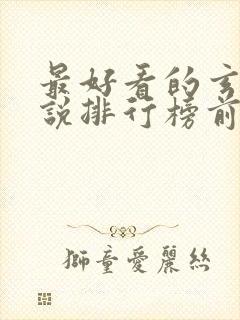 最好看的玄
說排行榜前
獅童愛麗絲